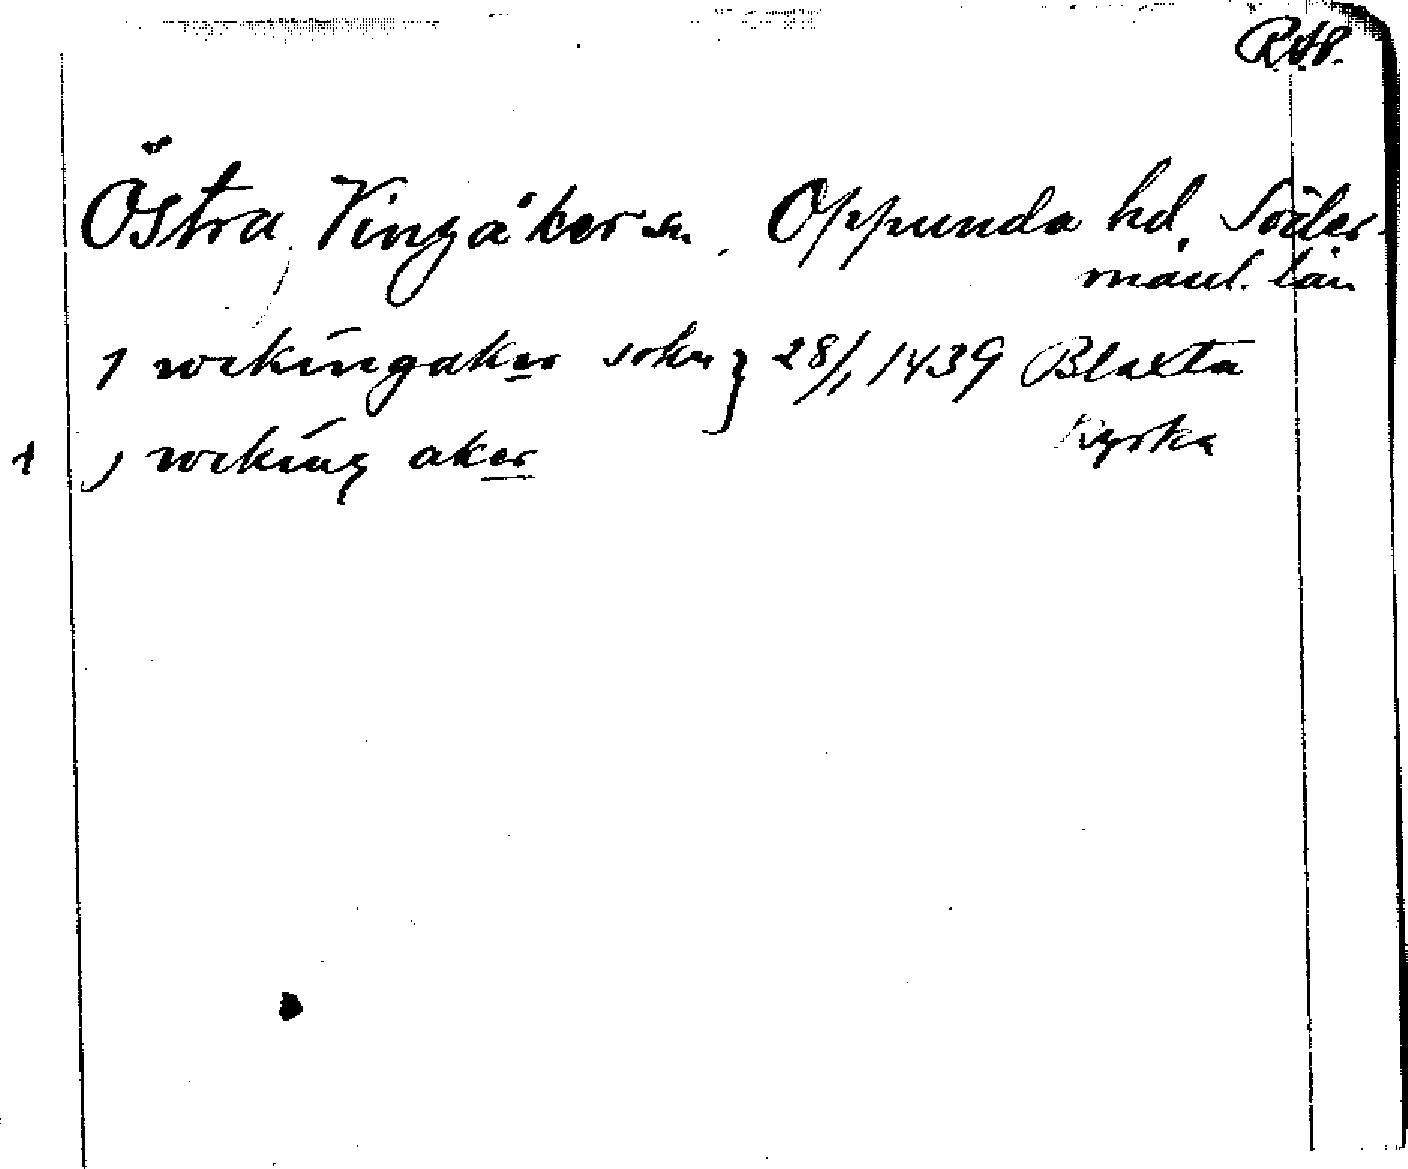 R.A.P.
Östra Vingåker sn. Oppunda hd. Söder-
manl. län
j wekingaker sokn } 28/1 1439 Blaxta
1 j weking aker Kyrka